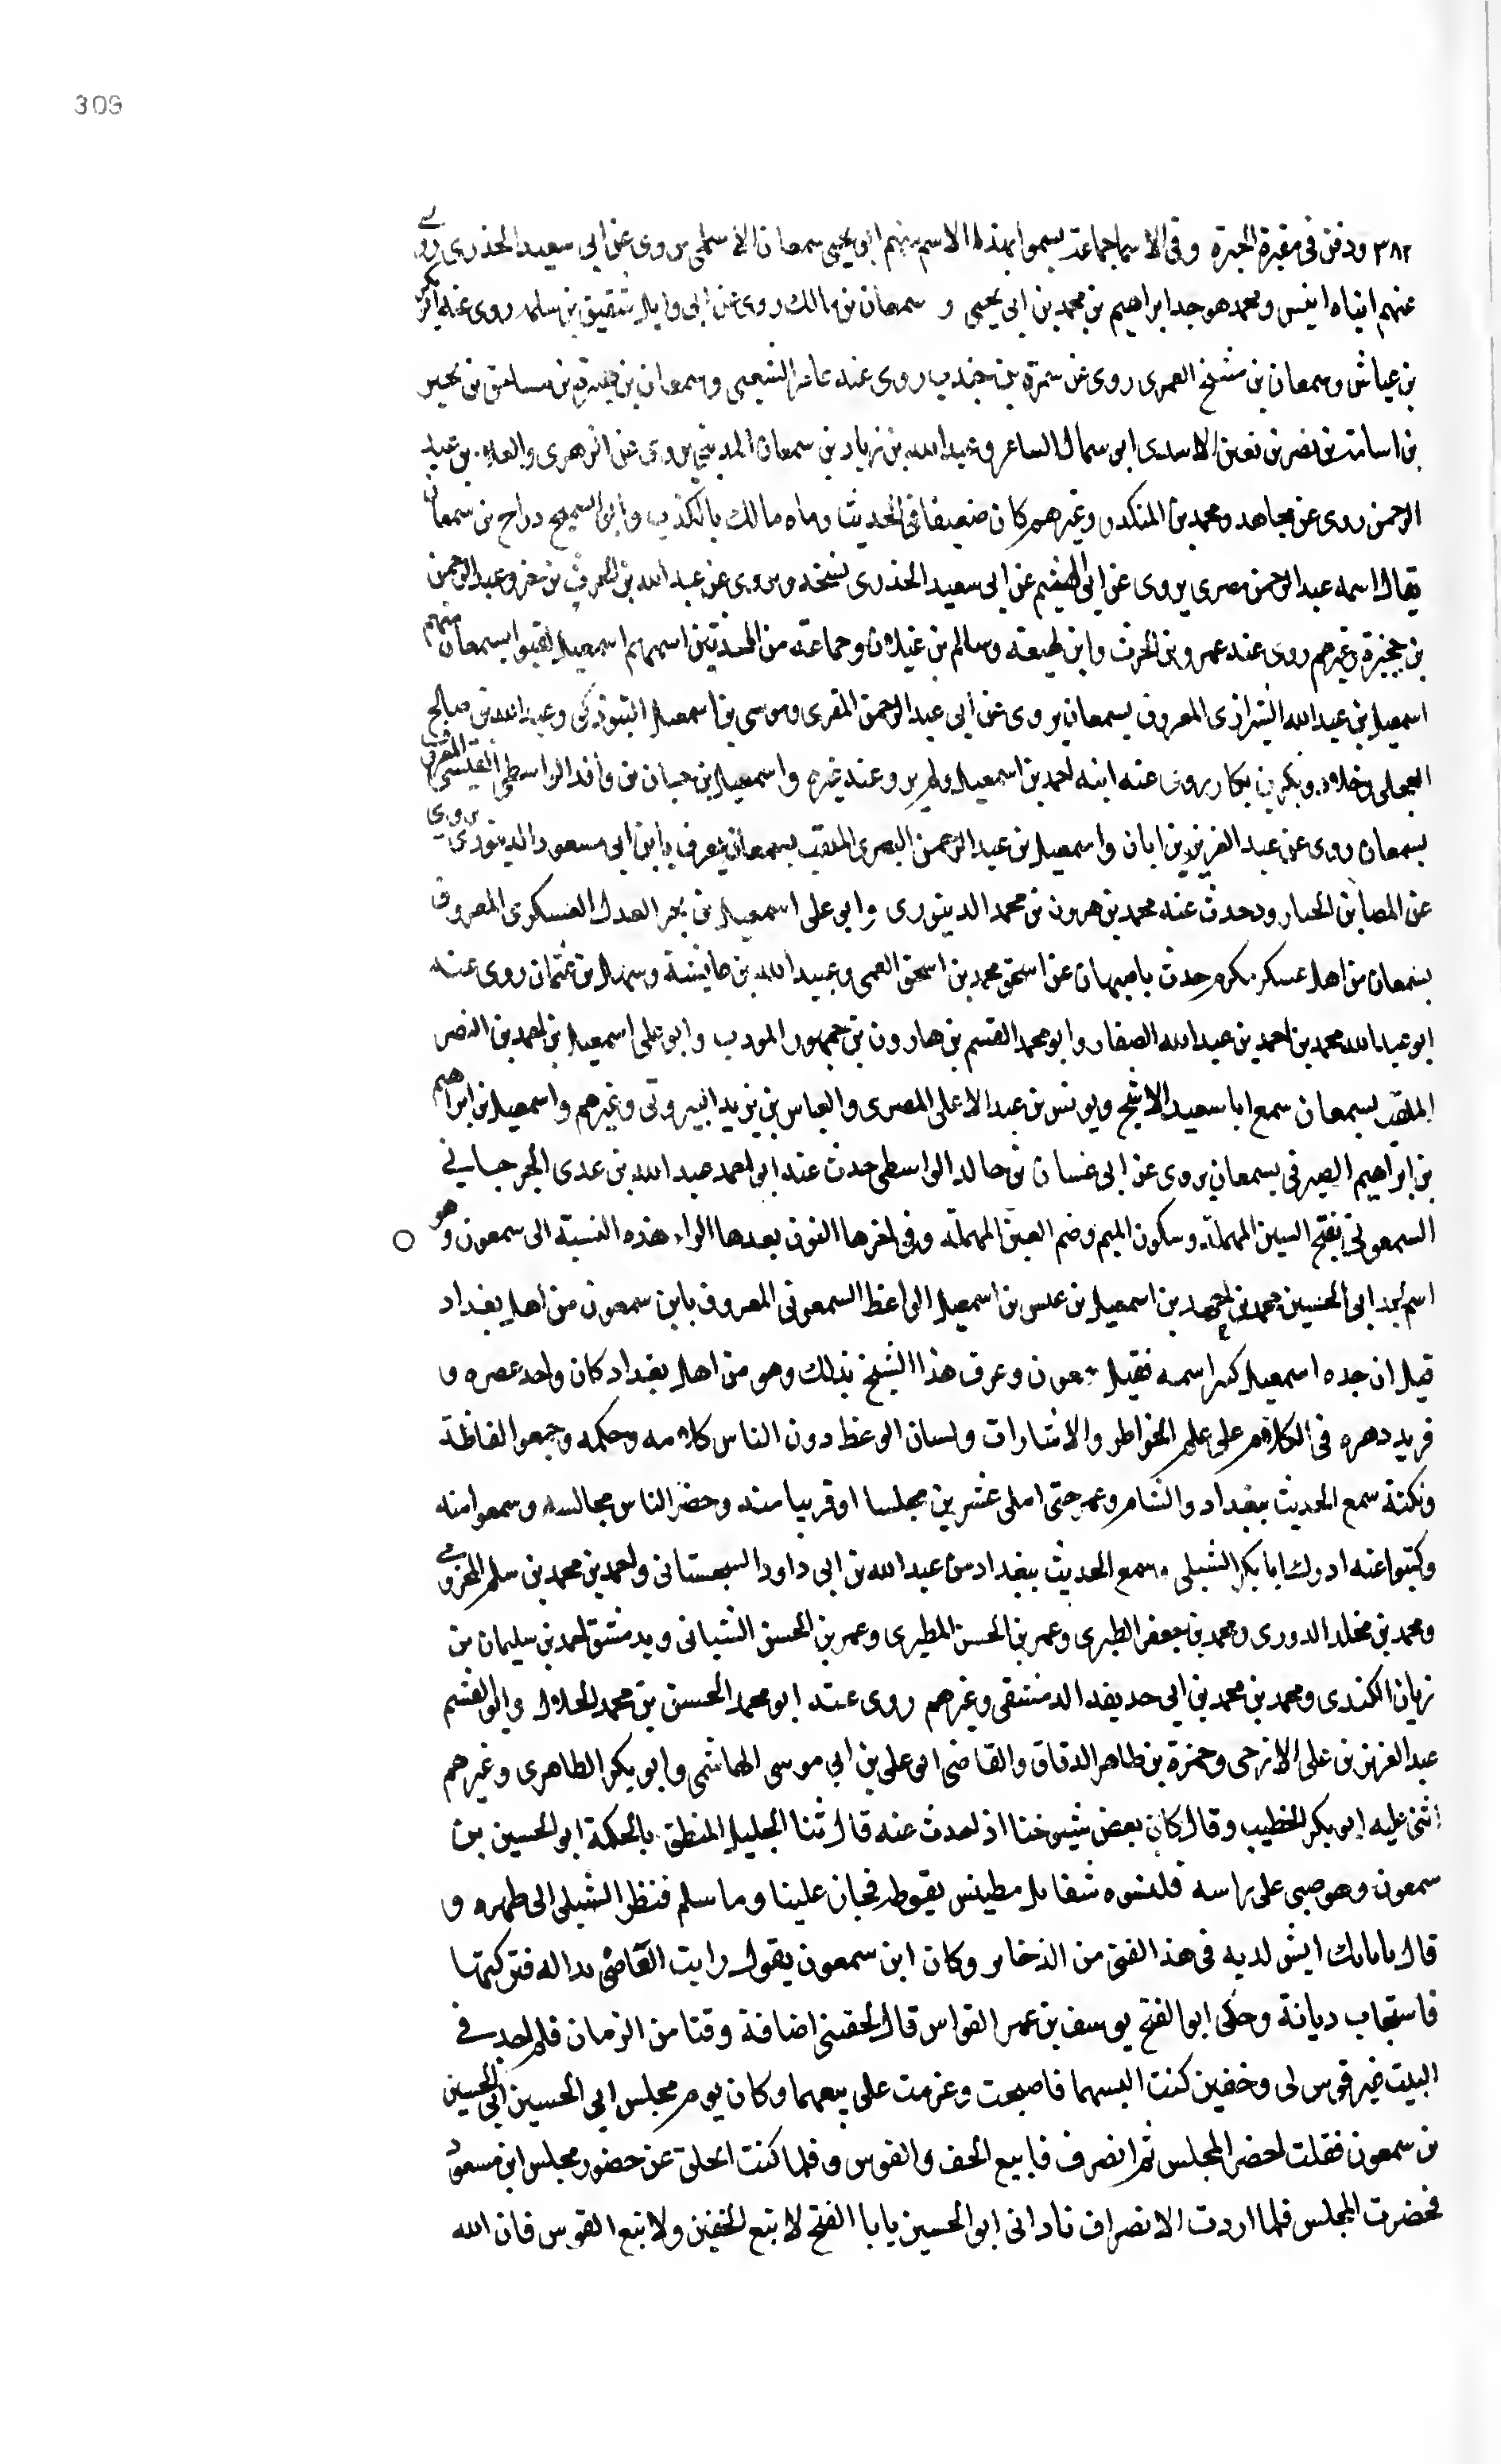 309
٣٨٢ ودفن فى مقبرة الحيرة وفى الاسما جماعة يسموا بهذا الاسم منهم ابو يحيى سمعان الاسلمى يروى عن ابى سعيد الخدرى روى
عنهم ابناه انيس ومحمد هو جد ابراهيم بن محمد بن ابى يحيى و سمعان بن مالك روى عن ابى وايل شقيق بن سلمه روى عنه ابو بكر
بن عياش وسمعان بن مشنخ العمرى روى عن سمرة بن جندب روى عنه عامر الشعبى وسمعان بن هبيرة بن مساحق بن بجير
بن اسامة بن نصر بن قعين الاسدى ابو سمال الساعر وعبد الله بن زياد بن سمعان المدينى يروى عن الزهرى والعلاء بن عبد
الرحمن روى عن مجاهد ومحمد بن المنكدر وغيرهم كان ضعيفا فى الحديث رماه مالك بالكذب وابو السمح دراج بن سمعان
يقال اسمه عبد الرحمن مصرى يروى عن ابى الهيثم عن ابى سعيد الخدرى نسخه ويروى عن عبد الله بن الحرث بن جزء وعبد الرحمن
بن حجيرة وغيرهم روى عنه عمرو بن الحرث وابن لهيعه وسالم بن غيلان وجماعة من المحدثين اسمهم اسمعيل لقبوا بسمعان منهم
اسمعيل بن عبد الله الشيرازى المعروف بسمعان يروى عن ابى عبد الرحمن المقرى وموسى بن اسمعيل التبوذكى وعبد الله بن صالح
العجلى وخلاد وبكر بن بكار روى عنه ابنه احمد بن اسمعيل ولم يرو عنه غيره واسمعيل بن حبان بن وافد الواسطى الثقفى المعروف
بسمعان روى عن عبد العزيز بن ابان واسمعيل بن عبد الرحمن البصرى الملقب بسمعان يعرف بابن ابى مسعود الدينورى يروى
عن ودحدث عنه محمد بن هرون بن محمد الدينورى وابو على اسمعيل بن بحر العدل العسكرى المعروف
بسمعان من اهل عسكر مكرم حدث باصبهان عن اسحق محمد بن اسحق العمى وعبيد الله بن عايشة وسهل بن عثمان روى عنه
ابو عبد الله محمد بن احمد بن عبد الله الصفار وابو محمد القسم بن هارون بن جمهور المودب وابو على اسمعيل بن احمد بن النضر
الملقب بسمعان سمع ابا سعيد الاشج ويونس بن عبد الاعلى المصرى والعباس بن يزيد البيروتى وغيرهم واسمعيل بن ابراهيم
بن ابراهيم الصيرفى بسمعان يروى عن ابى غسان بن خالد الواسطى حدث عنه ابو احمد عبد الله بن عدى الجرجانى
السمعونى بفتح السين المهملة وسكون الميم وضم العين المهملة وفى اخرها النون بعدها الواو هذه النسبة الى سمعون وهو
اسم لجد ابى الحسين محمد بن احمد بن اسمعيل بن عبس بن اسمعيل الواعظ السمعونى المعروف بابن سمعون من اهل بغداد
قيل ان جده اسمعيل كسر اسمه فقيل سمعون وعرف هذا الشيخ بذلك وهو من اهل بغداد كان واحد عصره و
فريد دهره فى الكلام على علم الخواطر والاشارات ولسان الوعظ دون الناس كلامه وحكمه وجمعوا الفاظة
ونكتة سمع الحديث ببغداد والشام وعمر حتى املى عشرين مجلسا او قريبا منه وحضر الناس مجالسه وسمعوا منه
وكتبوا عنه ادرك ابا بكر الشبلى وسمع الحديث ببغداد من عبد الله بن ابى داود السجستانى واحمد بن محمد بن سلم المخرمى
ومحمد بن مخلد الدورى ومحمد بن جعفر الطبرى وعمر بن الحسن المطيرى وعمر بن الحسن الشيبانى وبدمشق احمد بن سليمان بن
زبان الكندى ومحمد بن محمد بن ابى حذيفه الدمشقى وغيرهم روى عنه ابو محمد الحسن بن محمد الخلال وابو القسم
عبد العزيز بن على الازجى وحمزة بن طاهر الدقاق والقاضى ابو على بن ابى موسى الهاشمى وابو بكر الطاهرى وغيرهم
اثنى عليه ابو بكر الخطيب وقال كان بعض شيوخنا اذا حدث عنه قال ثنا الجليل المنطق بالحكمة ابو الحسين بن
سمعون وهو صبى على راسه قلنسوه شفا مطينس بفوطه فجاز علينا وما سلم فنظر الشبلى الى ظهره و
قال يابابك ايش لديه فى هذا الفتى من الذخاير وكان ابن سمعون يقول رايت المعاصى نذاله فتركتها
فاستجاب ديانة وحكى ابو الفتح يوسف بن عمر القواس قال لحقنى اضافة وقتا من الزمان فلم اجد فى
البيت غير قوس لى وخفين كنت البسهما فاصبحت وعزمت على بيعهما وكان يوم مجلس ابى الحسين ابى الحسين
بن سمعون فقلت احضر المجلس ثم انصرف فابيع الخف والقوس وقلما كنت اتخلق عن حضور مجلس ابن مسعود
فحضرت المجلس فلما اردت الانصراف نادانى ابو الحسين يابا الفتح لا تبع الخفين ولا تبع القوس فان الله